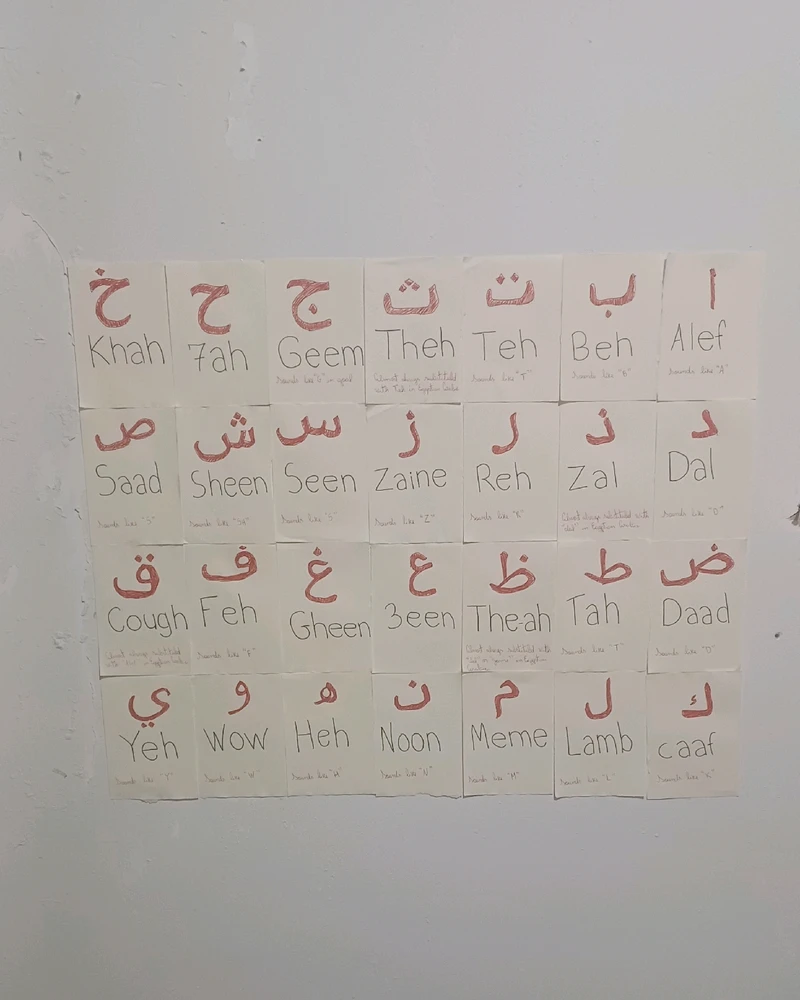 ا
Alef
Sounds like "A"
ب
Beh
Sounds like "B"
ت
Teh
Sounds like "T"
ث
Theh
Almost always substituted
with Teh in Egyptian Arabic
ج
Geem
Sounds like "G" in
ح
7ah
خ
Khah
د
Dal
Sounds like "D"
ذ
Zal
Almost always substituted with
in Egyptian Arabic
ر
Reh
Sounds like "R"
ز
Zaine
Sounds like "Z"
س
Seen
Sounds like "S"
ش
Sheen
Sounds like "SH"
ص
Saad
Sounds like "S"
ض
Daad
Sounds like "D"
ط
Tah
Sounds like "T"
ظ
The-ah
Almost always substituted with
in Egyptian
ع
3een
غ
Gheen
ف
Feh
Sounds like "F"
ق
Cough
Almost always substituted
with in Egyptian
ك
caaf
Sounds like "K"
ل
Lamb
Sounds like "L"
م
Meme
Sounds like "M"
ن
Noon
Sounds like "N"
ه
Heh
Sounds like "H"
و
Wow
Sounds like "W"
ي
Yeh
Sounds like "Y"